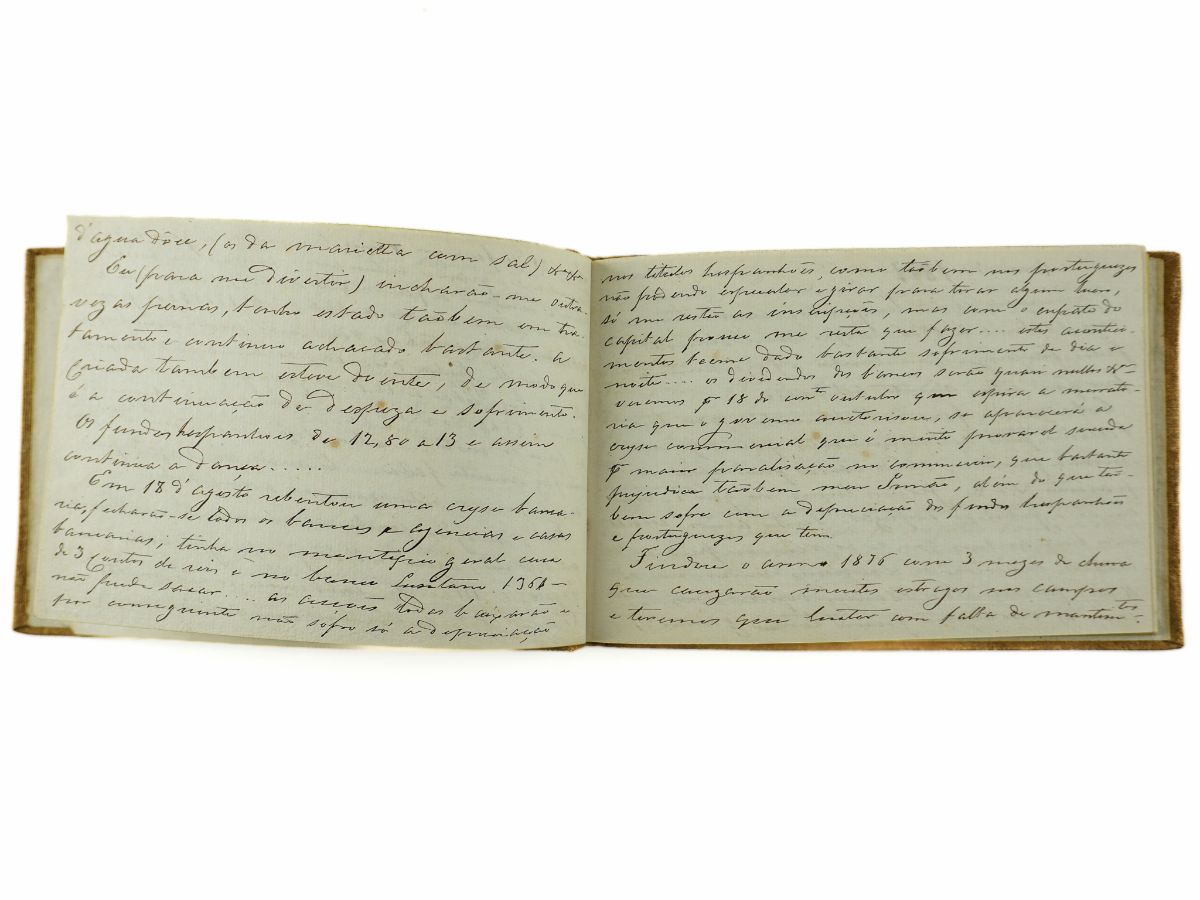 d'agua dôce, (os da marietta com sal)
Eu (para me divertir) incharão-me outra
vez as pernas, tenho estado taõbem em tra-
tamento e continuo adoeçado bastante. a
criada tambem esteve doente, de modo que
é a continuação de despeza e sofrimento.
Os fundos hespanhoes de 12,80 a 13 e assim
continua a dança.....
Em 18 d'agosto rebentou uma cryse banca-
ria, fecharão-se todos os bancos e agencias e casas
bancarias; tinha no montepio geral cerca
de 3 contos de reis e no banco Lusitano 1361-
não pude sacar.... as acções todas baixarão e
por conseguinte não sofro só a depreciação
nos titulos hespanhóes, como taõbem nos portuguezes
não podendo especular e girar para tirar algum lucro,
só me restão as inscripções, mas com o empate do
capital pouco me resta que fazer.... estes aconteci-
mentos teeme dado bastante sofrimento de dia e
noite.... os dividendos dos bancos serão quasi nullos
veremos p 18 do outubro que espira a morato-
ria que o governo autorisou, se aparecerá a
cryse commercial que é muito provavel suceda
p maior paralisação no commercio, que bastante
prejudica taõbem meu Irmão, alem do que tão-
bem sofre com a depreciação dos fundos hespanhóes
e portuguezes que tem.
Findou o anno 1876 com 3 mezes de chuva
que cauzarão muitos estragos nos campos
e teremos que luctar com falta de mantim.tos